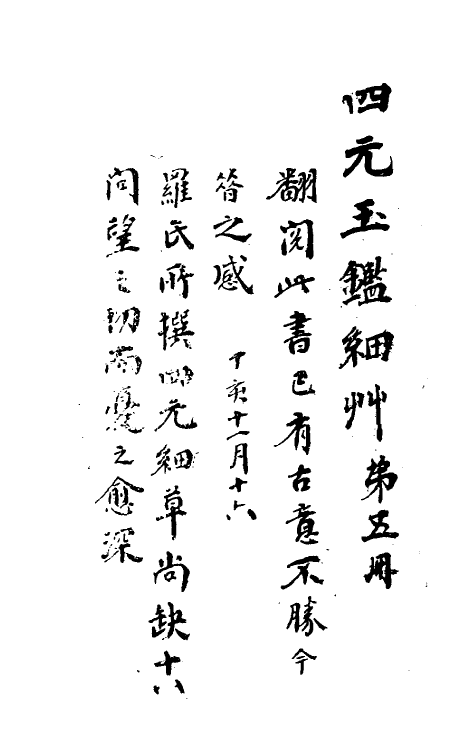 四元玉鑑細艸 第五冊
翻閱此書已有古意不勝今
昝之感 丁亥十一月十六
羅氏所撰四元細草尚缺十八
問望之切而憂之愈深